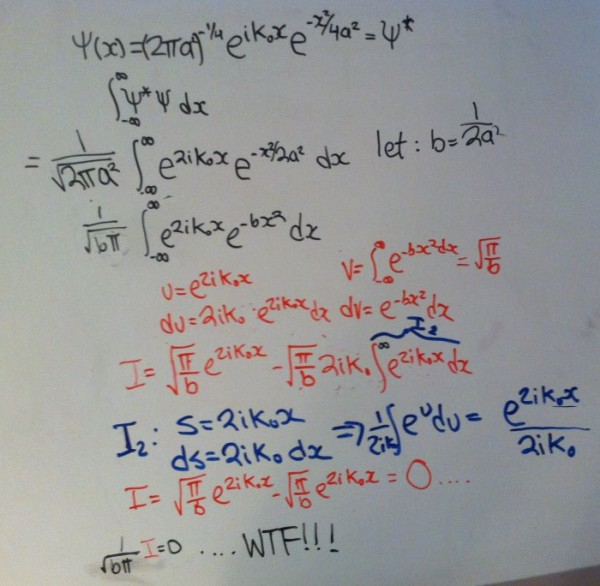 Ψ(x)=(2πa²)^-1/4 e^ik₀x e^-x²/4a² = Ψ*
∫_-∞^∞ Ψ*Ψ dx
= 1/√2πa² ∫_-∞^∞ e^2ik₀x e^-x²/2a² dx let: b = 1/2a²
1/√bπ ∫_-∞^∞ e^2ik₀x e^-bx² dx
u = e^2ik₀x v = ∫_-∞^∞ e^-bx² dx = √π/b
du = 2ik₀·e^2ik₀x dx dv = e^-bx² dx
I₂
I = √π/b e^2ik₀x - √π/b 2ik₀ ∫_-∞^∞ e^2ik₀x dx
I₂: s = 2ik₀x
ds = 2ik₀ dx ⇒ 1/2ik₀ ∫ e^u du = e^2ik₀x/2ik₀
I = √π/b e^2ik₀x - √π/b e^2ik₀x = 0 ....
1/√bπ I = 0 .... WTF!!!